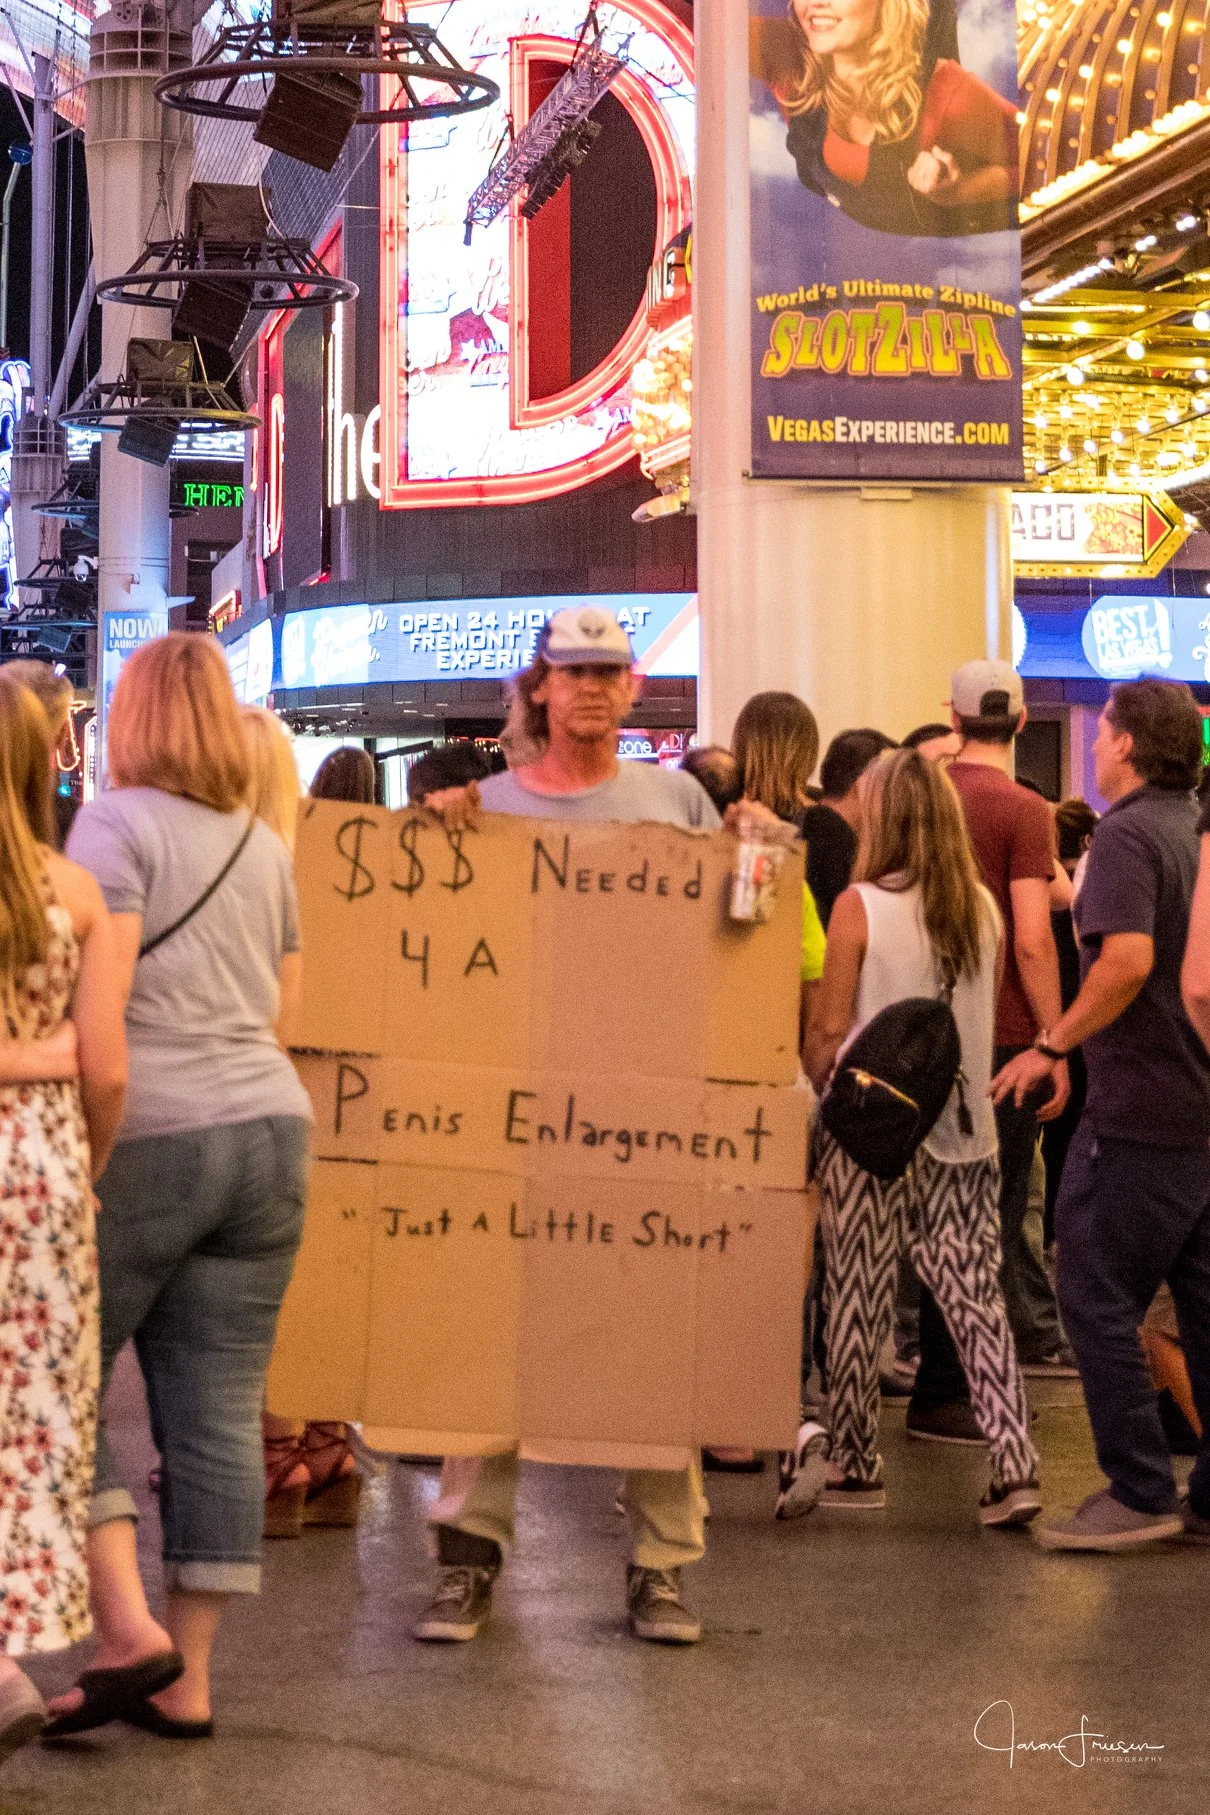 World's Ultimate Zipline
SLOTZILLA
VEGASEXPERIENCE.COM
D
the
HEN
ACO
NOW
LAUNCH
OPEN 24 HO AT
FREMONT E
EXPERIE
BEST
LAS VEGAS!
$$$ NEEdEd
4 A
PENis ENlargEMENt
"Just A Little Short"
Jason Friesen
PHOTOGRAPHY